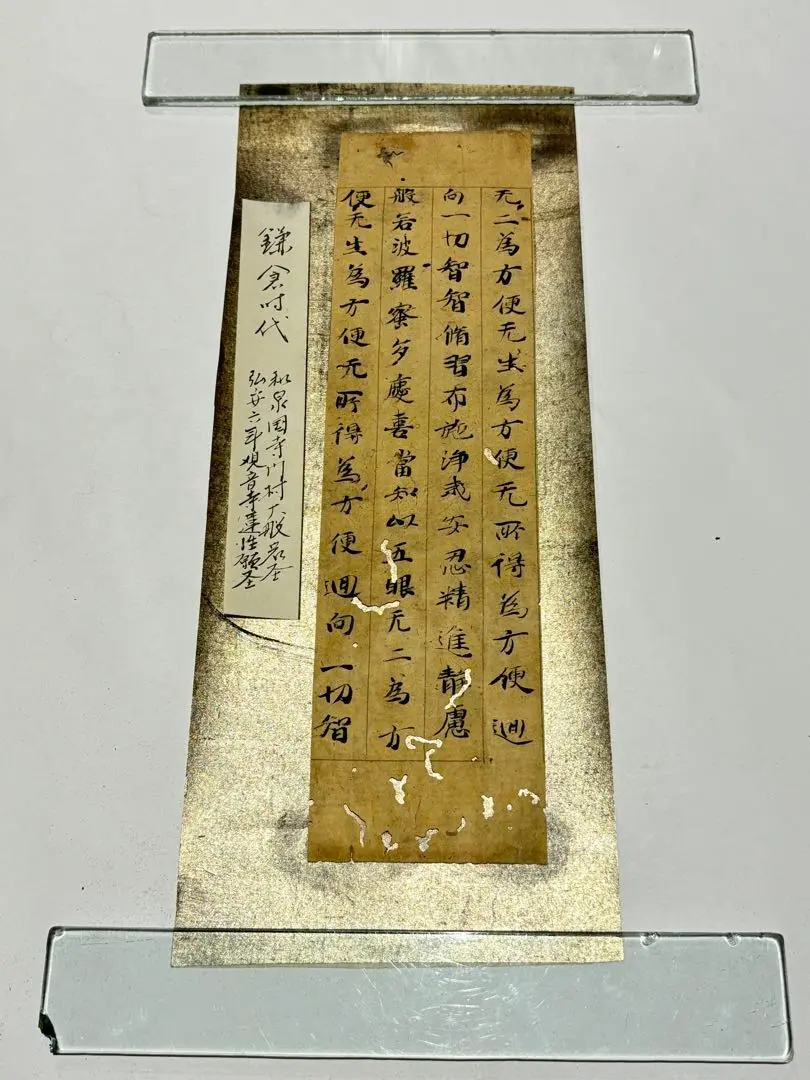 无二為方便无生為方便无所得為方便迴
向一切智智脩習布施浄戒安忍精進静慮
般若波羅蜜多慶喜當知以五眼无二為方
便无生為方便无所得為方便迴向一切智
鎌倉时代
和泉国寺门村大般若
弘安六年观音寺